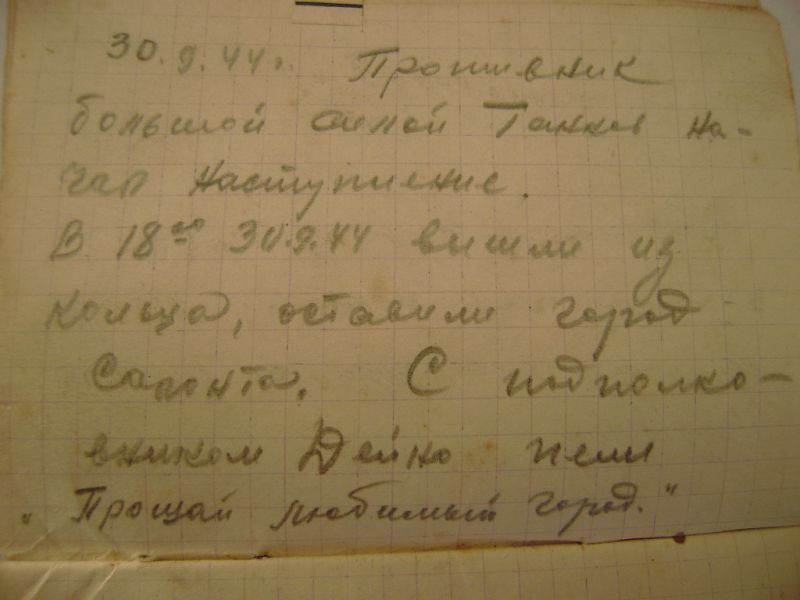 30.9.44г. Противник
большой силой Танков на-
чал наступление.
В 18⁰⁰ 30.9.44 вышли из
кольца, оставили город
Салонта. С подполко-
вником Дейно пели
„Прощай любимый город."